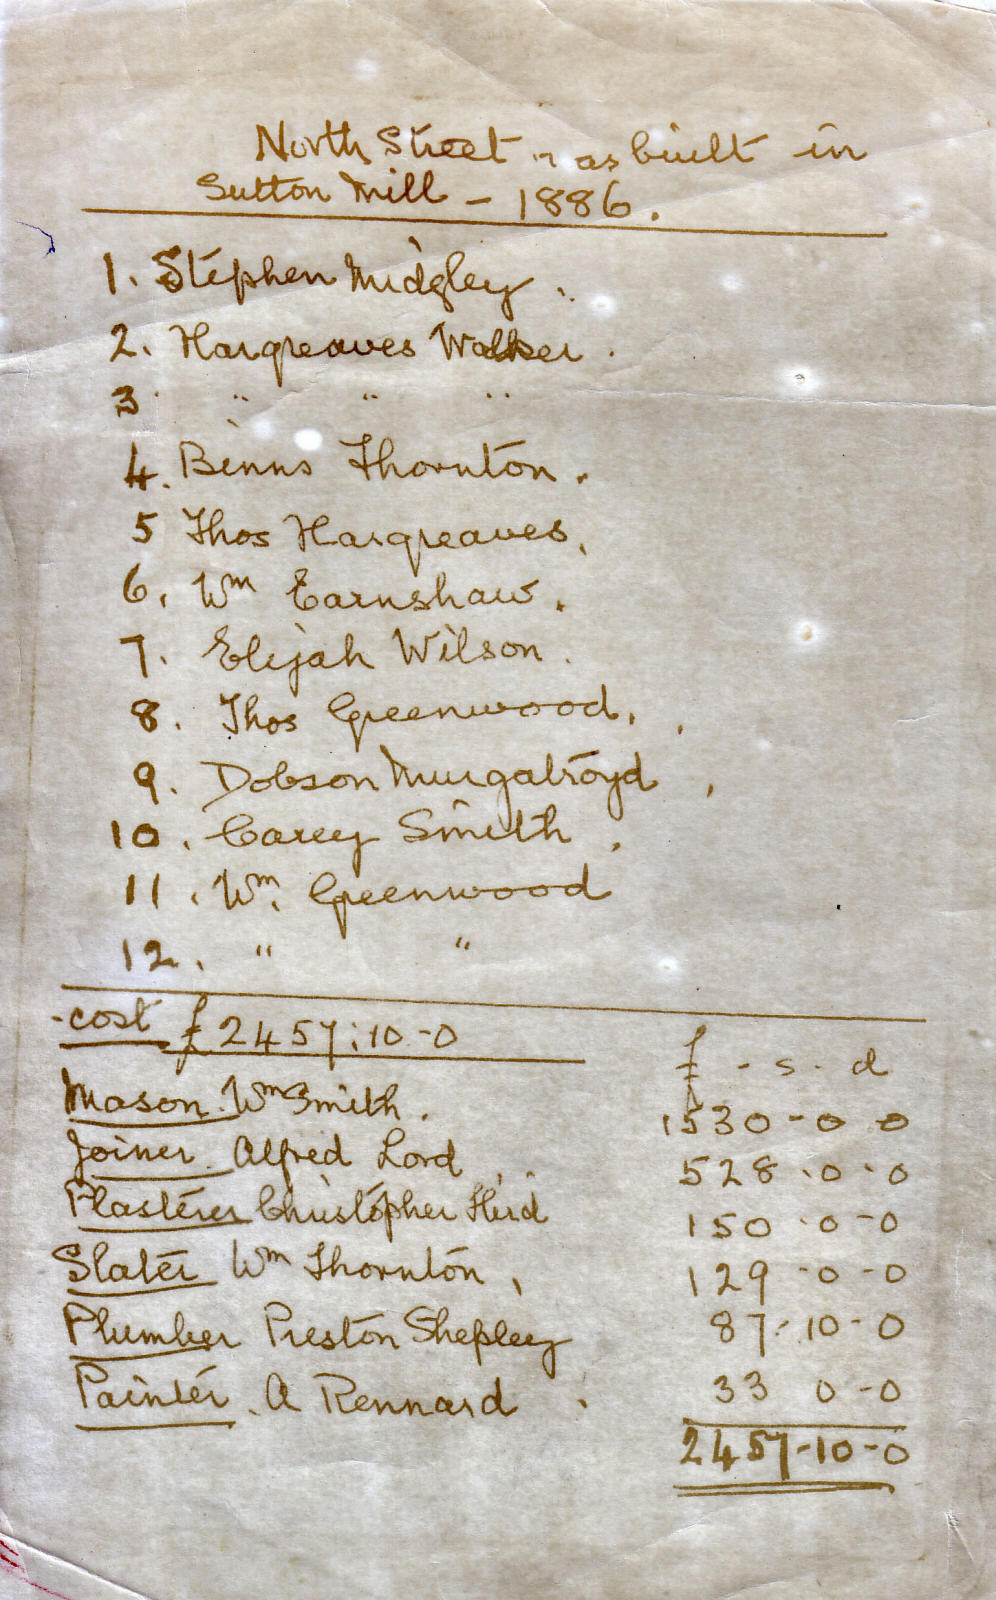 North Street - as built in
Sutton Mill - 1886.
1. Stephen Midgley.
2. Hargreaves Walker.
3 " " "
4. Binns Thornton.
5 Thos Hargreaves.
6. Wm Earnshaw.
7. Elijah Wilson.
8. Thos Greenwood.
9. Dobson Murgatroyd
10. Carey Smith.
11. Wm. Greenwood
12. " "
cost £2457:10-0
£ - s. d
Mason. Wm Smith. 1530-0 0
Joiner Alfred Lord 528.0.0
Plasterer Christopher Hird 150.0-0
Slater Wm Thornton, 129-0-0
Plumber Preston Shepley 87-10-0
Painter. A Rennard 33 0-0
2457-10-0